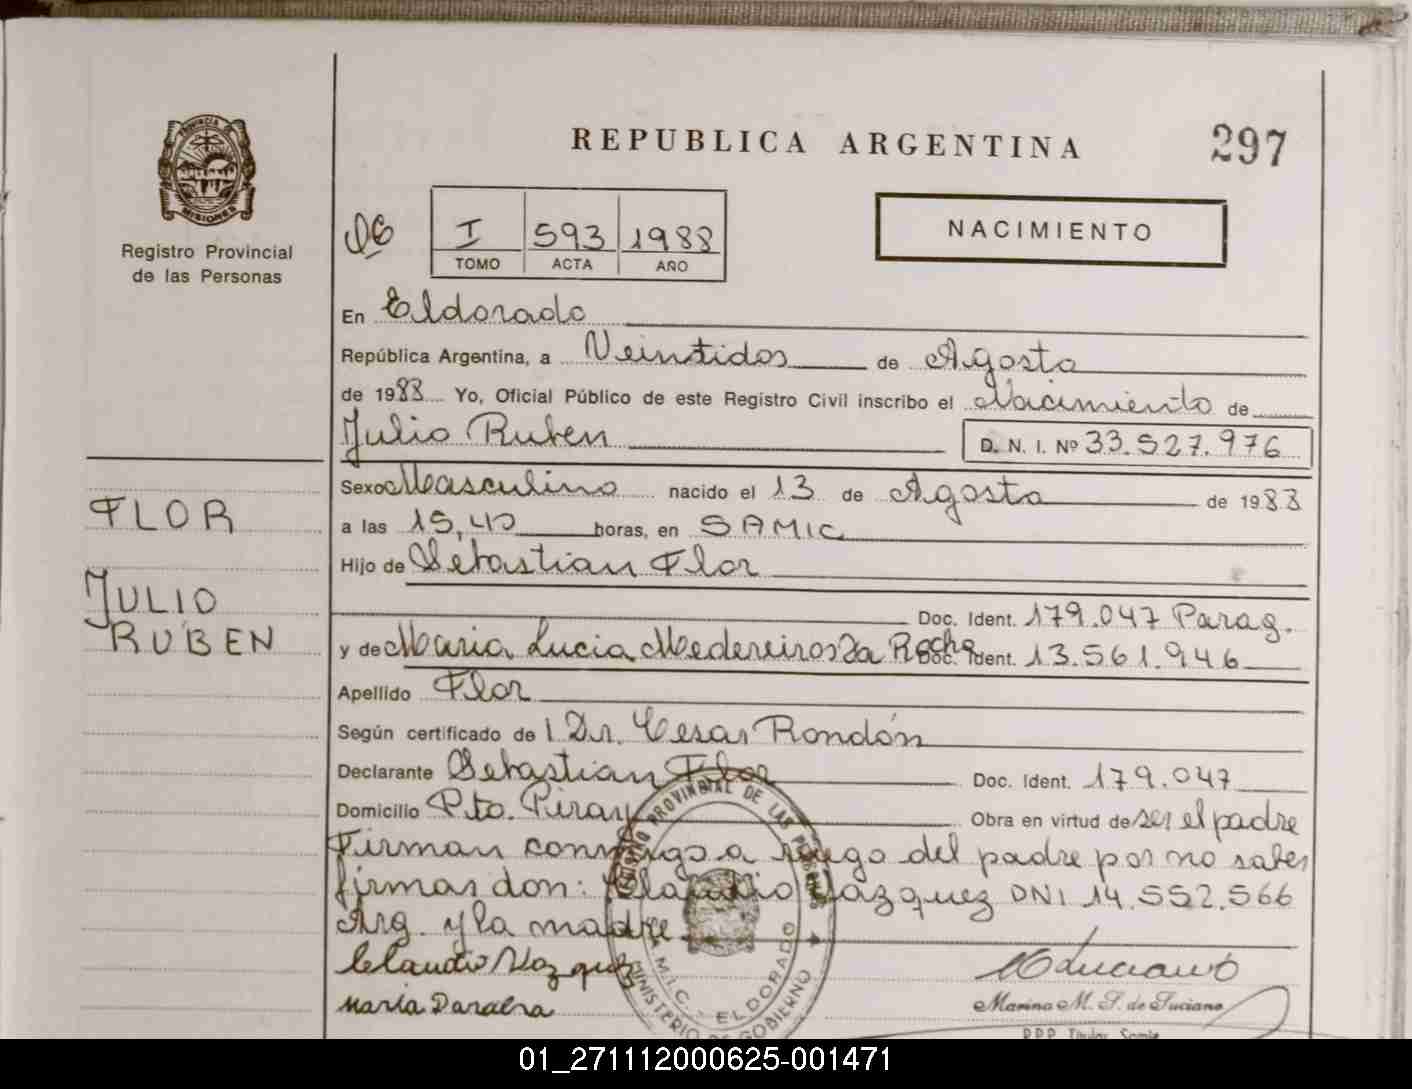 REPUBLICA ARGENTINA
297
PROVINCIA DE
MISIONES
Registro Provincial
de las Personas
I 593 1988
TOMO ACTA AÑO
NACIMIENTO
En Eldorado
República Argentina, a Veintidos de Agosto
de 1988 Yo, Oficial Público de este Registro Civil inscribo el Nacimiento de
Julio Ruben D. N. I. Nº 33.527.976
Sexo Masculino nacido el 13 de Agosto de 1988
a las 15,40 horas, en SAMIC
Hijo de Sebastian Flor
Doc. Ident. 179.047 Parag.
y de Maria Lucia Medereiros Da Rocha Doc. Ident. 13.561.946
Apellido Flor
Según certificado de l Dr. Cesar Rondón
Declarante Sebastian Flor Doc. Ident. 179.047
Domicilio Pto. Piray Obra en virtud de ser el padre
Firman conmigo a ruego del padre por no saber
firmar don: Claudio Vazquez DNI 14.552.566
Arg. y la madre
Claudio Vazquez
Maria
Marina M. S. de Luciano
FLOR
JULIO
RUBEN
REGISTRO PROVINCIAL DE LAS PERSONAS
M.I.C. - ELDORADO
MINISTERIO DE GOBIERNO
01_271112000625-001471